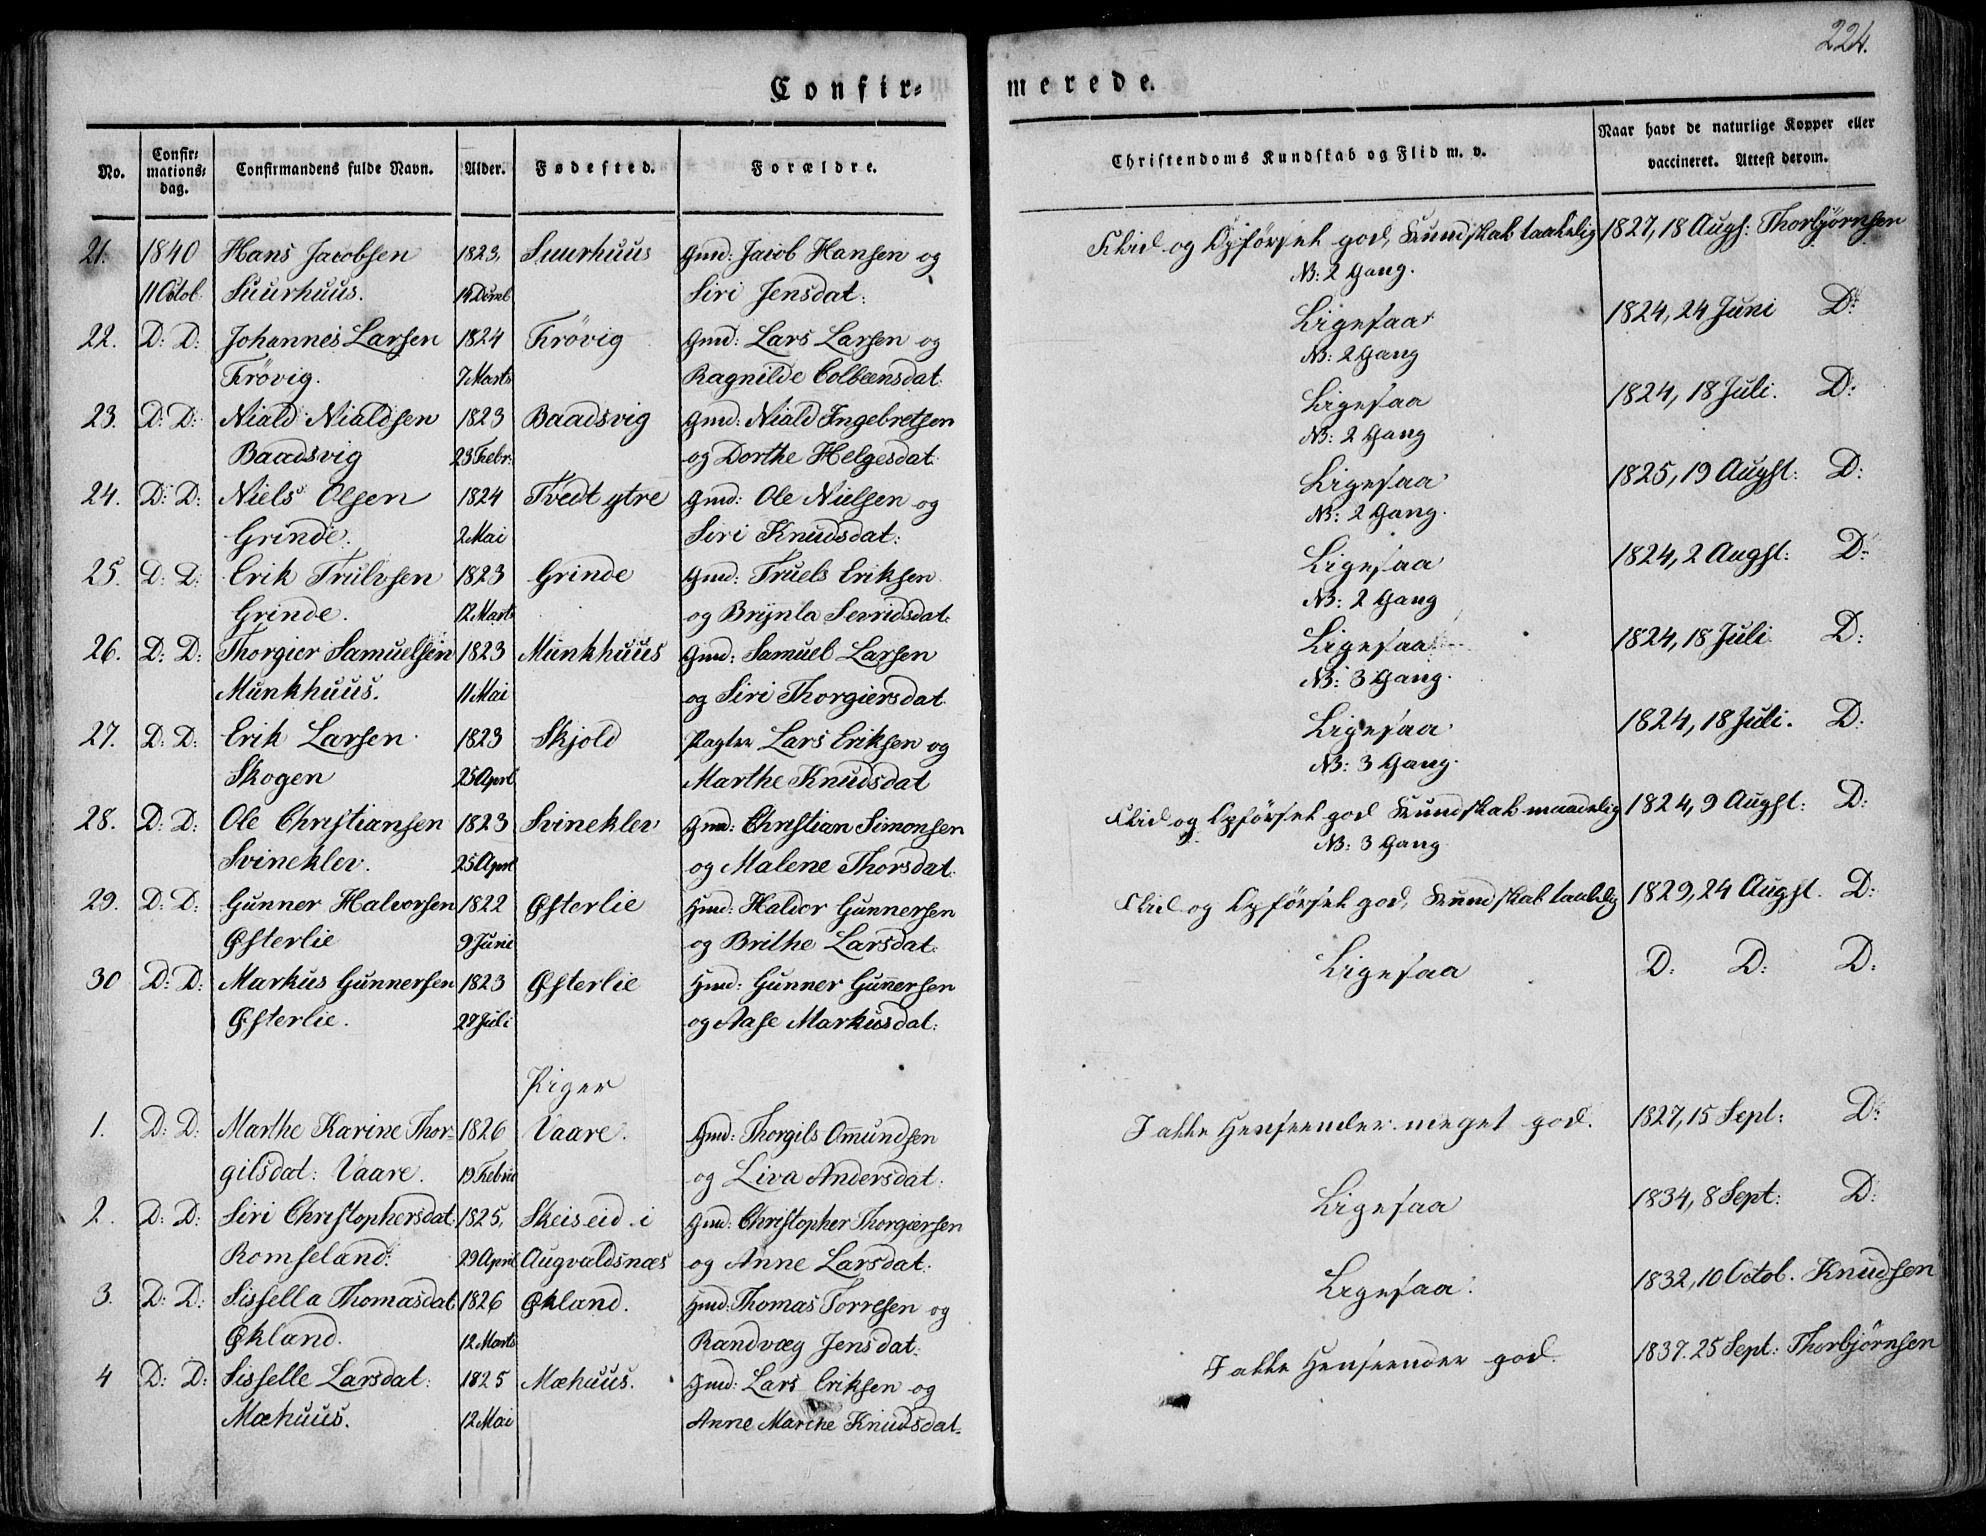 224.
Confir=
merede.
No.
Confir=
mations=
dag.
Confirmandens fulde Navn.
Alder.
Fødested.
Forældre.
Christendoms Kundskab og Flid m. v.
Naar havt de naturlige Kopper eller
vaccineret. Attest derom.
21. 1840 Hans Jacobsen 1823, Suurhuus Gmd: Jacob Hansen og Flid og Opførsel god, Kundskab taalelig 1827, 18 Augs: Thorbjørnsen
11 Octob. Suurhuus. 14 Decmb Siri Jensdat: NB: 2 Gang.
22. D: D: Johannes Larsen 1824 Frövig Gmd: Lars Larsen og Ligesaa 1824, 24 Juni D:
Frövig. 7 Marts Ragnilde Colbeensdat: NB: 2 Gang
23. D: D: Niald Nialdsen 1823 Baadsvig Gmd: Niald Ingebretsen Ligesaa 1824, 18 Juli. D:
Baadsvig 23 Febr: og Dorthe Helgesdat: NB: 2 Gang
24. D: D: Niels Olsen 1824 Tvedt ytre Gmd: Ole Nielsen og Ligesaa 1825, 19 Augst: D:
Grinde. 2 Mai Siri Knudsdat: NB: 2 Gang.
25. D: D: Erik Trulvsen 1823 Grinde Gmd: Truels Eriksen Ligesaa 1824, 2 Augst: D:
Grinde. 12 Marts og Brynla Sevridsdat: NB: 2 Gang
26. D: D: Thorgier Samuelsen 1823 Munkhuus Gmd: Samuel Larsen Ligesaa 1824, 18 Juli D:
Munkhuus. 11 Mai og Siri Thorgiersdat NB: 3 Gang.
27. D: D: Erik Larsen 1823 Skjold Pagter Lars Eriksen og Ligesaa 1824, 18 Juli. D:
Skogen 25 April Marthe Knudsdat NB: 3 Gang.
28. D: D: Ole Christiansen 1823 Svineklev Gmd: Christian Simonsen Flid og Opførsel god Kundskab maadelig 1824, 9 Augst: D:
Svineklev. 25 April og Malene Thorsdat: NB: 3 Gang
29. D: D: Gunner Halvorsen 1822 Østerlie Hmd: Haldor Gunnersen Flid og Opførsel god, Kundskab taalelig 1829, 24 Augst. D:
Østerlie 9 Juni og Brithe Larsdat:
30 D: D: Markus Gunnersen 1823 Østerlie Hmd: Gunner Guñersen Ligesaa D: D: D:
Østerlie. 27 Juli og Aase Markusdat:
Piger
1. D: D: Marthe Karine Thor- 1826 Vaare. Gmd: Thorgils Omundsen I alle Henseender meget god. 1827, 15 Sept: D:
gilsdat: Vaare. 19 Febru og Liva Andersdat:
2. D: D: Siri Christophersdat: 1825, Skeiseid i Gmd: Christopher Thorgiersen Ligesaa 1834, 8 Sept: D:
Romseland: 29 April Augvaldsnæs og Anne Larsdat:
3. D: D: Sissella Thomasdat 1826 Økland. Hmd: Thomas Torresen og Ligesaa. 1832, 10 Octob. Knudsen
Økland. 12 Marts Randvæg Jensdat:
4 D: D: Sisselle Larsdat: 1825 Mæhuus. Gmd: Lars Eriksen og I alle Henseender god. 1837. 25 Sept: Thorbjørnsen
Mæhuus. 12 Mai Anne Marthe Knudsdat.